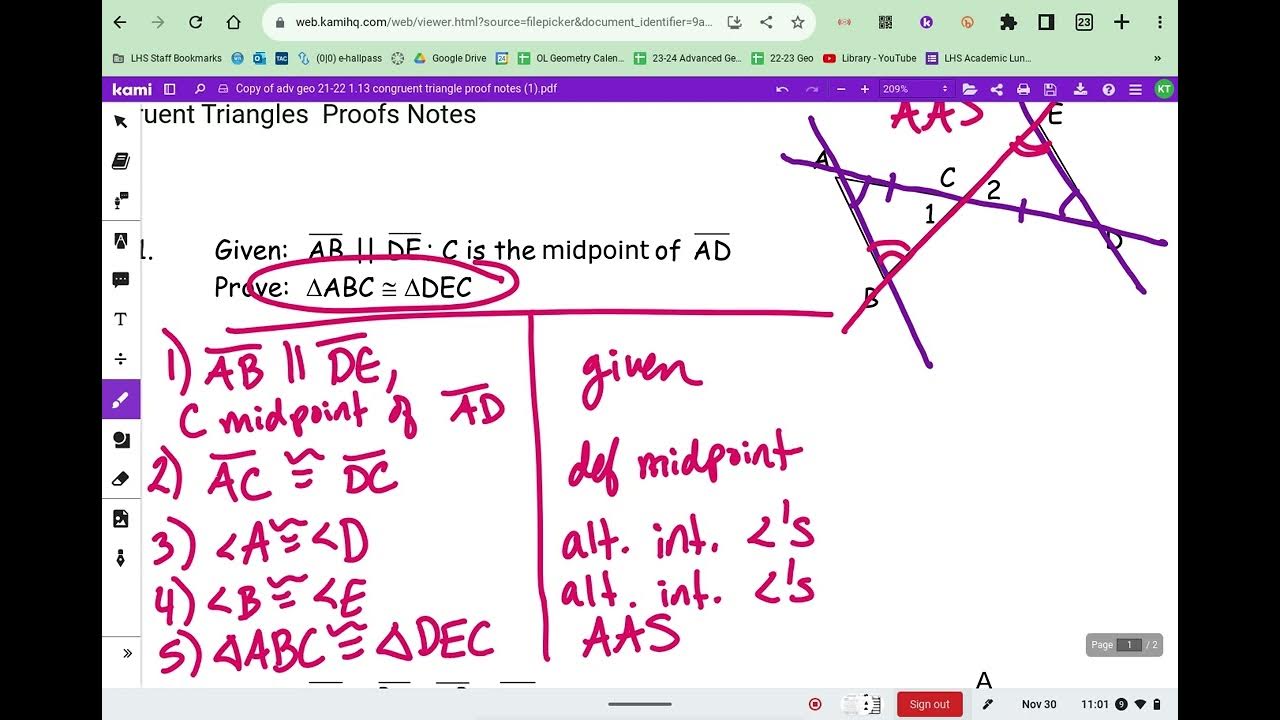 web.kamihq.com/web/viewer.html?source=filepicker&document_identifier=9a...
23
LHS Staff Bookmarks
TAC
(0|0) e-hallpass
Google Drive
OL Geometry Calen...
23-24 Advanced Ge...
22-23 Geo
Library - YouTube
LHS Academic Lun...
»
kami
Copy of adv geo 21-22 1.13 congruent triangle proof notes (1).pdf
209%
KT
ruent Triangles Proofs Notes
AAS
E
A
C
2
1
D
B
1. Given: AB || DE ; C is the midpoint of AD
Prove: ΔABC ≅ ΔDEC
1) AB || DE, given
C midpoint of AD
2) AC ≅ DC def midpoint
3) <A ≅ <D alt. int. <'s
4) <B ≅ <E alt. int. <'s
5) ΔABC ≅ ΔDEC AAS
Page 1 / 2
A
Sign out
Nov 30
11:01
9